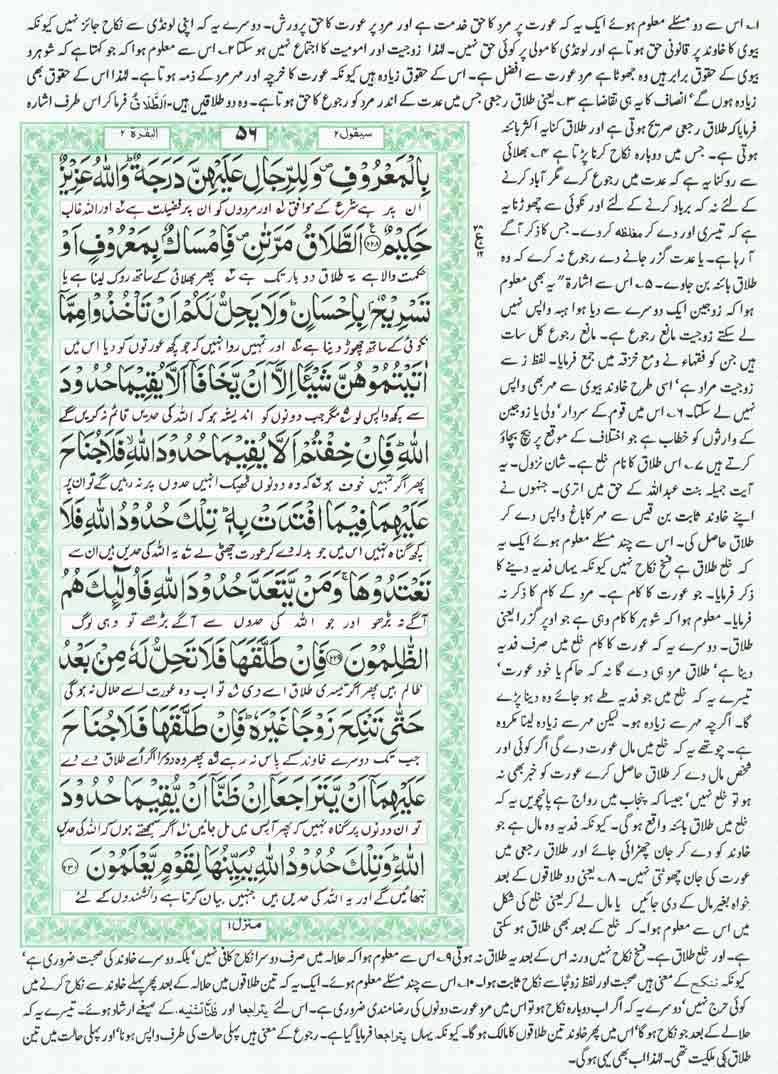 ۱۔ اس سے دو مسئلے معلوم ہوئے ایک یہ کہ عورت پر مرد کا حق خدمت ہے اور مرد پر عورت کا حق پرورش۔ دوسرے یہ کہ اپنی لونڈی سے نکاح جائز نہیں کیونکہ
بیوی کا خاوند پر قانونی حق ہوتا ہے اور لونڈی کا مولی پر کوئی حق نہیں۔ لہٰذا زوجیت اور امومیت کا اجتماع نہیں ہو سکتا ۲۔ اس سے معلوم ہوا کہ جو کہتا ہے کہ شوہر و
بیوی کے حقوق برابر ہیں وہ جھوٹا ہے مرد عورت سے افضل ہے۔ اس کے حقوق زیادہ ہیں کیونکہ عورت کا خرچہ اور مہر مرد کے ذمہ ہوتا ہے۔ لہٰذا اس کے حقوق بھی
زیادہ ہوں گے' انصاف کا یہ ہی تقاضا ہے ۳۔ یعنی طلاق رجعی جس میں عدت کے اندر مرد کو رجوع کا حق ہوتا ہے۔ وہ دو طلاقیں ہیں۔ اَلطَّلَاقُ فرما کر اس طرف اشارہ
فرمایا کہ طلاق رجعی صریح ہوتی ہے اور طلاق کنایہ اکثر بائنہ
ہوتی ہے۔ جس میں دوبارہ نکاح کرنا پڑتا ہے ۴۔ بھلائی
سے روکنا یہ ہے کہ عدت میں رجوع کرے مگر آباد کرنے
کے لئے نہ کہ برباد کرنے کے لئے اور نکوئی سے چھوڑنا یہ
ہے کہ تیسری اور دے کر مغلظہ کر دے۔ جس کا ذکر آگے
آ رہا ہے۔ یا عدت گزر جانے دے رجوع نہ کرے کہ وہ
طلاق بائنہ بن جاوے۔ ۵۔ اس سے اشارۃ" یہ بھی معلوم
ہوا کہ زوجین ایک دوسرے سے دیا ہوا ہبہ واپس نہیں
لے سکتے زوجیت مانع رجوع ہے۔ مانع رجوع کل سات
ہیں جن کو فقہاء نے دمع خزقہ میں جمع فرمایا۔ لفظ ز سے
زوجیت مراد ہے' اسی طرح خاوند بیوی سے مہر بھی واپس
نہیں لے سکتا۔ ۶۔ اس میں قوم کے سردار' ولی یا زوجین
کے وارثوں کو خطاب ہے جو اختلاف کے موقع پر بیچ بچاؤ
کرتے ہیں ۷۔ اس طلاق کا نام خلع ہے۔ شان نزول۔ یہ
آیت جمیلہ بنت عبداللہ کے حق میں اتری۔ جنہوں نے
اپنے خاوند ثابت بن قیس سے مہر کا باغ واپس دے کر
طلاق حاصل کی۔ اس سے چند مسئلے معلوم ہوئے ایک یہ
کہ خلع طلاق ہے فسخ نکاح نہیں کیونکہ یہاں فدیہ دینے کا
ذکر فرمایا۔ جو عورت کا کام ہے۔ مرد کے کام کا ذکر نہ
فرمایا۔ معلوم ہوا کہ شوہر کا کام وہی ہے جو اوپر گزرا یعنی
طلاق۔ دوسرے یہ کہ عورت کا کام خلع میں صرف فدیہ
دینا ہے' طلاق مرد ہی دے گا نہ کہ حاکم یا خود عورت'
تیسرے یہ کہ خلع میں جو فدیہ طے ہو جائے وہ دینا پڑے
گا۔ اگرچہ مہر سے زیادہ ہو۔ لیکن مہر سے زیادہ لینا مکروہ
ہے۔ چوتھے یہ کہ خلع میں مال عورت دے گی اگر کوئی اور
شخص مال دے کر طلاق حاصل کرے عورت کو خبر بھی نہ
ہو تو خلع نہیں' جیسا کہ پنجاب میں رواج ہے پانچویں یہ کہ
خلع میں طلاق بائنہ واقع ہو گی۔ کیونکہ فدیہ وہ مال ہے جو
خاوند کو دے کر جان چھڑائی جائے اور طلاق رجعی میں
عورت کی جان چھوٹتی نہیں۔ ۸۔ یعنی دو طلاقوں کے بعد
خواہ بغیر مال کے دی جائیں یا مال لے کر یعنی خلع کی شکل
میں اس سے معلوم ہوا۔ کہ خلع کے بعد بھی طلاق ہو سکتی
سیقول ۲
۵۶
البقرۃ ۲
بِالْمَعْرُوْفِ ۪ وَلِلرِّجَالِ عَلَيْهِنَّ دَرَجَةٌ ؕ وَاللّٰهُ عَزِيْزٌ
ان پر ہے شرع کے موافق ۱؎ اور مردوں کو ان پر فضیلت ہے ۲؎ اور اللہ غالب
حَكِيْمٌ ۝۲۲۸ اَلطَّلَاقُ مَرَّتٰنِ ۪ فَاِمْسَاكٌۢ بِمَعْرُوْفٍ اَوْ
حکمت والا ہے یہ طلاق دو بار تک ہے ۳؎ پھر بھلائی کے ساتھ روک لینا ہے یا
تَسْرِيْحٌۢ بِاِحْسَانٍ ؕ وَلَا يَحِلُّ لَكُمْ اَنْ تَاْخُذُوْا مِمَّاۤ
نکوئی کے ساتھ چھوڑ دینا ہے ۴؎ اور تمہیں روا نہیں کہ جو کچھ عورتوں کو دیا اس میں
اٰتَيْتُمُوْهُنَّ شَيْـًٔا اِلَّاۤ اَنْ يَّخَافَاۤ اَلَّا يُقِيْمَا حُدُوْدَ
سے کچھ واپس لو ۵؎ مگر جب دونوں کو اندیشہ ہو کہ اللہ کی حدیں قائم نہ کریں گے
اللّٰهِ ؕ فَاِنْ خِفْتُمْ اَلَّا يُقِيْمَا حُدُوْدَ اللّٰهِ ۙ فَلَا جُنَاحَ
پھر اگر تمہیں خوف ہو ۶؎ کہ وہ دونوں ٹھیک انہیں حدوں پر نہ رہیں گے تو ان پر
عَلَيْهِمَا فِيْمَا افْتَدَتْ بِهٖ ؕ تِلْكَ حُدُوْدُ اللّٰهِ فَلَا
کچھ گناہ نہیں اس میں جو بدلہ دے کر عورت چھٹی لے ۷؎ یہ اللہ کی حدیں ہیں ان سے
تَعْتَدُوْهَا ۚ وَمَنْ يَّتَعَدَّ حُدُوْدَ اللّٰهِ فَاُولٰٓئِكَ هُمُ
آگے نہ بڑھو اور جو اللہ کی حدوں سے آگے بڑھے تو وہی لوگ
الظّٰلِمُوْنَ ۝۲۲۹ فَاِنْ طَلَّقَهَا فَلَا تَحِلُّ لَهٗ مِنْۢ بَعْدُ
ظالم ہیں پھر اگر تیسری طلاق اسے دی ۸؎ تو اب وہ عورت اسے حلال نہ ہوگی
حَتّٰى تَنْكِحَ زَوْجًا غَيْرَهٗ ؕ فَاِنْ طَلَّقَهَا فَلَا جُنَاحَ
جب تک دوسرے خاوند کے پاس نہ رہے ۹؎ پھر وہ دوسرا اگر اسے طلاق دے دے
عَلَيْهِمَاۤ اَنْ يَّتَرَاجَعَاۤ اِنْ ظَنَّاۤ اَنْ يُّقِيْمَا حُدُوْدَ
تو ان دونوں پر گناہ نہیں کہ پھر آپس میں مل جائیں ۱۰؎ اگر سمجھتے ہوں کہ اللہ کی حدیں
اللّٰهِ ؕ وَتِلْكَ حُدُوْدُ اللّٰهِ يُبَيِّنُهَا لِقَوْمٍ يَّعْلَمُوْنَ ۝۲۳۰
نبھائیں گے اور یہ اللہ کی حدیں ہیں جنہیں بیان کرتا ہے دانشمندوں کے لئے
منزل ۱
ہے۔ اور خلع طلاق ہے۔ فسخ نکاح نہیں ورنہ اس کے بعد یہ طلاق نہ ہوتی ۹۔ اس سے معلوم ہوا کہ حلالہ میں صرف دوسرا نکاح کافی نہیں' بلکہ دوسرے خاوند کی صحبت ضروری ہے'
کیونکہ تنکح کے معنی ہیں صحبت اور لفظ زوجًا سے نکاح ثابت ہوا۔ ۱۰۔ اس سے چند مسئلے معلوم ہوئے۔ ایک یہ کہ تین طلاقوں میں حلالہ کے بعد پھر پہلے خاوند سے نکاح کرنے میں
کوئی حرج نہیں' دوسرے یہ کہ اگر اب دوبارہ نکاح ہو تو اس میں مرد عورت دونوں کی رضامندی ضروری ہے۔ اس لئے یتراجعا اور ظنّا تثنیہ کے صیغے ارشاد ہوئے۔ تیسرے یہ کہ
حلالے کے بعد جو نکاح ہو گا' اس میں پھر خاوند تین طلاقوں کا مالک ہو گا۔ کیونکہ یہاں یتراجعا فرمایا گیا ہے۔ رجوع کے معنی ہیں پہلی حالت کی طرف واپس ہونا' اور پہلی حالت میں تین
طلاق کی ملکیت تھی۔ لہٰذا اب بھی یہی ہو گی۔